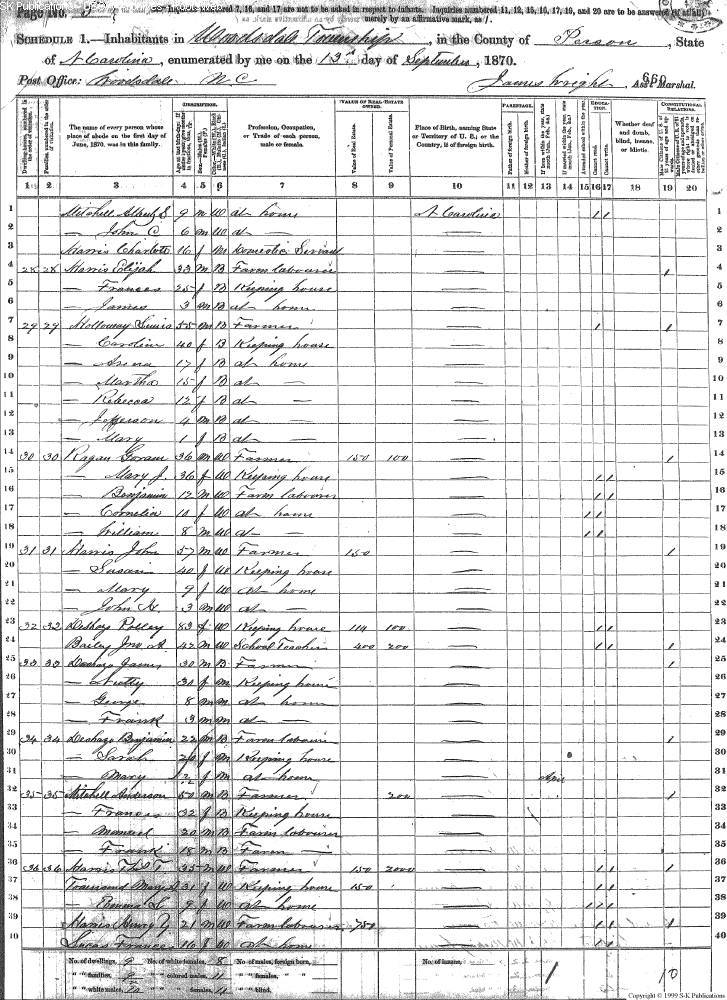 SK Publications
Page No. 5
Inquiries numbered 7, 16, and 17 are not to be asked in respect to infants. Inquiries numbered 11, 12, 15, 16, 17, 19, and 20 are to be answered (if at all)
merely by an affirmative mark, as /.
SCHEDULE 1.—Inhabitants in Woodsdale Township, in the County of Person, State
of N Carolina, enumerated by me on the 13th day of September, 1870.
660
Post Office: Woodsdale N C James Wright, Ass't Marshal.
DESCRIPTION. VALUE OF REAL ESTATE OWNED. PARENTAGE. EDUCATION. CONSTITUTIONAL RELATIONS.
The name of every person whose place of abode on the first day of June, 1870, was in this family.
Profession, Occupation, or Trade of each person, male or female.
Value of Real Estate.
Value of Personal Estate.
Place of Birth, naming State or Territory of U. S.; or the Country, if of foreign birth.
Father of foreign birth.
Mother of foreign birth.
Attended school within the year.
Cannot read.
Cannot write.
Whether deaf and dumb, blind, insane, or idiotic.
1 2 3 4 5 6 7 8 9 10 11 12 13 14 15 16 17 18 19 20
1 Mitchell Albert S 9 m W at home N Carolina / / 1
2 — John C 6 m W at — — 2
3 Harris Charlott 16 f M Domestic Servant — 3
4 28 28 Harris Elijah 33 M B Farm labourer — / 4
5 — Frances 25 f B Keeping house — 5
6 — James 3 m B at home — 6
7 29 29 Holloway Lewis 55 m B Farmer — / / 7
8 — Caroline 40 f B Keeping house — 8
9 — 17 f B at home — 9
10 — Martha 15 f B at — — 10
11 — Rebecca 12 f B at — — 11
12 — Jefferson 4 m B at — — 12
13 — Mary 1 f B at — — 13
14 30 30 Ragan Goram 36 m W Farmer 150 100 — / 14
15 — Mary J. 36 f W Keeping house — / / 15
16 — Benjamin 12 m W Farm labourer — / / 16
17 — Cornelia 10 f W at home — / / 17
18 — William 8 m W at — — / / 18
19 31 31 Harris John 57 m W Farmer 150 — / 19
20 — Susan 40 f W Keeping house — 20
21 — Mary 9 f W at home — 21
22 — John H. 3 m W at — — 22
23 32 32 Deshazo Polley 83 f W Keeping house 114 100 — / / 23
24 Bailey Jno. A 42 m W School Teacher 400 200 — / / / 24
25 33 33 Deshazo James 30 m B Farmer — / 25
26 — 30 f m Keeping house — 26
27 — George 8 m m at home — 27
28 — Frank 3 m m at — — 28
29 34 34 Deshazo Benjamin 22 m B Farm labourer — / 29
30 — Sarah 20 f m Keeping house — 30
31 — Mary 2/12 f m at home — April 31
32 35 35 Mitchell Anderson 50 m B Farmer 200 — / 32
33 — Frances 32 f B Keeping house — 33
34 — Manuel 20 m B Farm labourer — 34
35 — Frank 18 m B Farm — — 35
36 36 36 Harris Thos T 35 m W Farmer 150 2000 — / / 36
37 Townsend Mary 31 f W Keeping house 150 — / / 37
38 — Emma L 9 f W at home — / / / 38
39 Harris Henry J 21 m W Farm labourer 750 — / / / 39
40 Lucas Frances 16 f W at home — / / 40
No. of dwellings, 9 No. of white females, 8 No. of males, foreign born, No. of insane,
" " families, 9 " " colored males, 11 " " females, " "
" " white males, " " females, 11 " " blind,
1 10
Copyright © 1999 S-K Publications